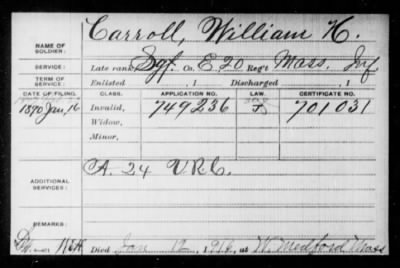 Carroll, William H.
NAME OF SOLDIER:
SERVICE: Late rank, Sgt. Co. E 20 Reg't Mass. Inf
TERM OF SERVICE: Enlisted , 1 Discharged , 1
DATE OF FILING. CLASS. APPLICATION NO. LAW. CERTIFICATE NO.
1890 Jan, 16 Invalid, 749236 701031
Widow,
Minor,
A. 24 V.R.C.
ADDITIONAL SERVICES:
REMARKS:
Died Jan 12, 1916, at W. Medford Mass